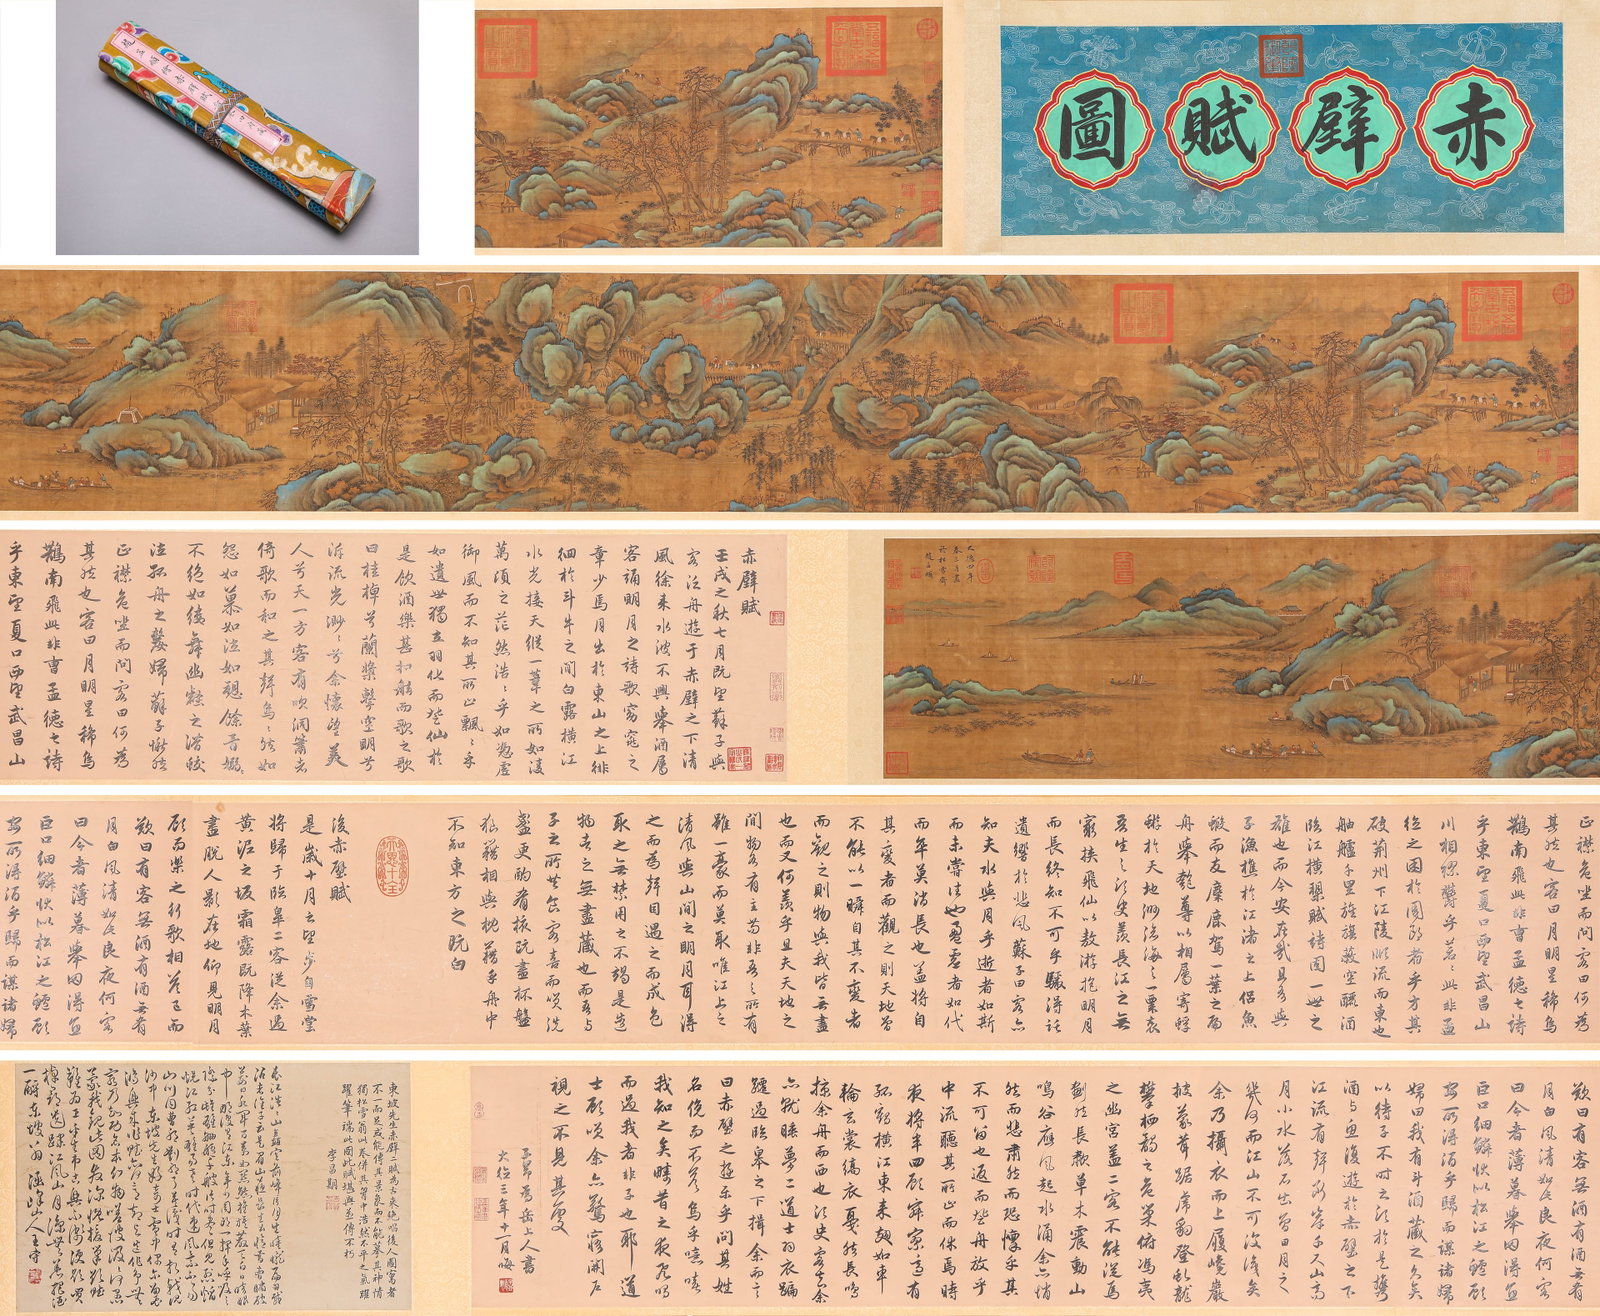 赤壁賦圖
大德四年
春三月畫
於松雪齋
趙孟頫
赤壁賦
壬戌之秋七月既望蘇子與
客泛舟遊于赤壁之下清
風徐来水波不興舉酒屬
客誦明月之詩歌窈窕之
章少焉月出於東山之上徘
徊於斗牛之間白露横江
水光接天縱一葦之所如凌
萬頃之茫然浩々乎如馮虛
御風而不知其所止飄々乎
如遺世獨立羽化而登仙於
是飲酒樂甚扣舷而歌之歌
曰桂棹兮蘭槳擊空明兮
泝流光渺々兮余懷望美
人兮天一方客有吹洞簫者
倚歌而和之其聲嗚々然如
怨如慕如泣如愬餘音嫋々
不絕如縷舞幽壑之潛蛟
泣孤舟之嫠婦蘇子愀然
正襟危坐而問客曰何為
其然也客曰月明星稀烏
鵲南飛此非曹孟德之詩
乎東望夏口西望武昌山
正襟危坐而問客曰何為
其然也客曰月明星稀烏
鵲南飛此非曹孟德之詩
乎東望夏口西望武昌山
川相繆鬱乎蒼々此非孟
德之困於周郎者乎方其
破荆州下江陵順流而東也
舳艫千里旌旗蔽空釃酒
臨江横槊賦詩固一世之
雄也而今安在哉况吾與
子漁樵於江渚之上侣魚
蝦而友麋鹿駕一葉之扁
舟舉匏尊以相屬寄蜉
蝣於天地渺滄海之一粟哀
吾生之須臾羨長江之無
窮挾飛仙以遨游抱明月
而長終知不可乎驟得託
遺響於悲風蘇子曰客亦
知夫水與月乎逝者如斯
而未嘗往也盈虛者如代
而卒莫消長也蓋將自
其變者而觀之則天地曾
不能以一瞬自其不變者
而觀之則物與我皆無盡
也而又何羨乎且夫天地之
間物各有主苟非吾之所有
雖一毫而莫取惟江上之
清風與山間之明月耳得
之而為聲目遇之而成色
取之無禁用之不竭是造
物者之無盡藏也而吾與
子之所共食客喜而笑洗
盞更酌肴核既盡杯盤
狼藉相與枕藉乎舟中
不知東方之既白
後赤壁賦
是歲十月之望步自雪堂
將歸于臨皋二客從余過
黄泥之坂霜露既降木葉
盡脱人影在地仰見明月
顧而樂之行歌相答已而
歎曰有客無酒有酒無肴
月白風清如此良夜何客
曰今者薄暮舉網得魚
巨口細鱗狀似松江之鱸顧
安所得酒乎歸而謀諸婦
歎曰有客無酒有酒無肴
月白風清如此良夜何客
曰今者薄暮舉網得魚
巨口細鱗狀似松江之鱸顧
安所得酒乎歸而謀諸婦
婦曰我有斗酒藏之久矣
以待子不時之須於是攜
酒與魚復遊於赤壁之下
江流有聲斷岸千尺山高
月小水落石出曾日月之
幾何而江山不可復識矣
余乃攝衣而上履巉巖
披蒙茸踞虎豹登虬龍
攀栖鶻之危巢俯馮夷
之幽宫蓋二客不能從焉
劃然長嘯草木震動山
鳴谷應風起水涌余亦悄
然而悲肅然而恐懔乎其
不可留也返而登舟放乎
中流聽其所止而休焉時
夜將半四顧寂寥適有
孤鶴横江東来翅如車
輪玄裳縞衣戛然長鳴
掠余舟而西也須臾客去余
亦就睡夢二道士羽衣蹁
躚過臨皋之下揖余而言
曰赤壁之遊樂乎問其姓
名俛而不答嗚乎噫嘻
我知之矣疇昔之夜飛鳴
而過我者非子也耶道
士顧笑余亦驚寤開户
視之不見其處
子昂為岳上人書
大德三年十一月晦
東坡先生赤壁二賦為古来絶唱後人圖寫者
不一而足或能傳其景而不能摹其神情
獨松雪翁以併其胸中浩然之氣躍
躍筆端此圖此賦堪與並傳不朽
李昌期